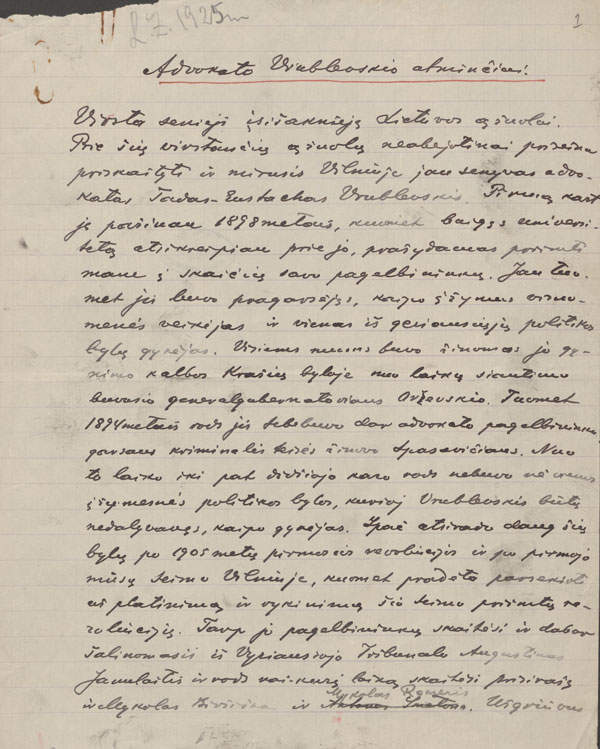 L. Ž. 1925 m
1
Advokato Vrublevskio atminčiai.
Virsta senieji įsišakniję Lietuvos ąžuolai.
Prie šių virstančių ąžuolų neabejotinai prisieina
priskaityti ir mirusis Vilniuje jau senyvas advo-
katas Tadas-Eustachas Vrublevskis. Pirmą kart
jį pažinau 1898 metais, kuomet baigęs universi-
tetą atsikreipiau prie jo, prašydamas priimti
mane į skaičių savo pagelbininkų. Jau tuo-
met jis buvo pragarsėjęs, kaipo įžymus visuo-
menės veikėjas ir vienas iš geriausiųjų politikos
bylų gynėjas. Visiems mums buvo žinomas jo gy-
nimo kalbos Kražių byloje nuo laikų siautimo
buvusio generalgubernatoriaus Orževskio. Tuomet
1894 metais rods jis tebebuvo dar advokato pagelbininku
garsaus kriminalės teisės žinovo Spasavičiaus. Nuo
to laiko iki pat didžiojo karo rods nebuvo nė vienos
įžymesnės politikos bylos, kurioj Vrublevskis būtų
nedalyvavęs, kaipo gynėjas. Ypač atsirado daug šių
bylų po 1905 metų pirmosios revoliucijos ir po pirmojo
mūsų seimo Vilniuje, kuomet pradėta persekioti
už platinimą ir vykinimą šio seimo priimtų re-
zoliucijų. Tarp jo pagelbininkų skaitėsi ir dabar
šalinamasis iš Vyriausiojo Tribunolo Augustinas
Janulaitis ir rods vaikurį laiką skaitėsi prisirašę
Mykolas Römeris
ir Mykolas Biržiška ir Antanas Smetona.